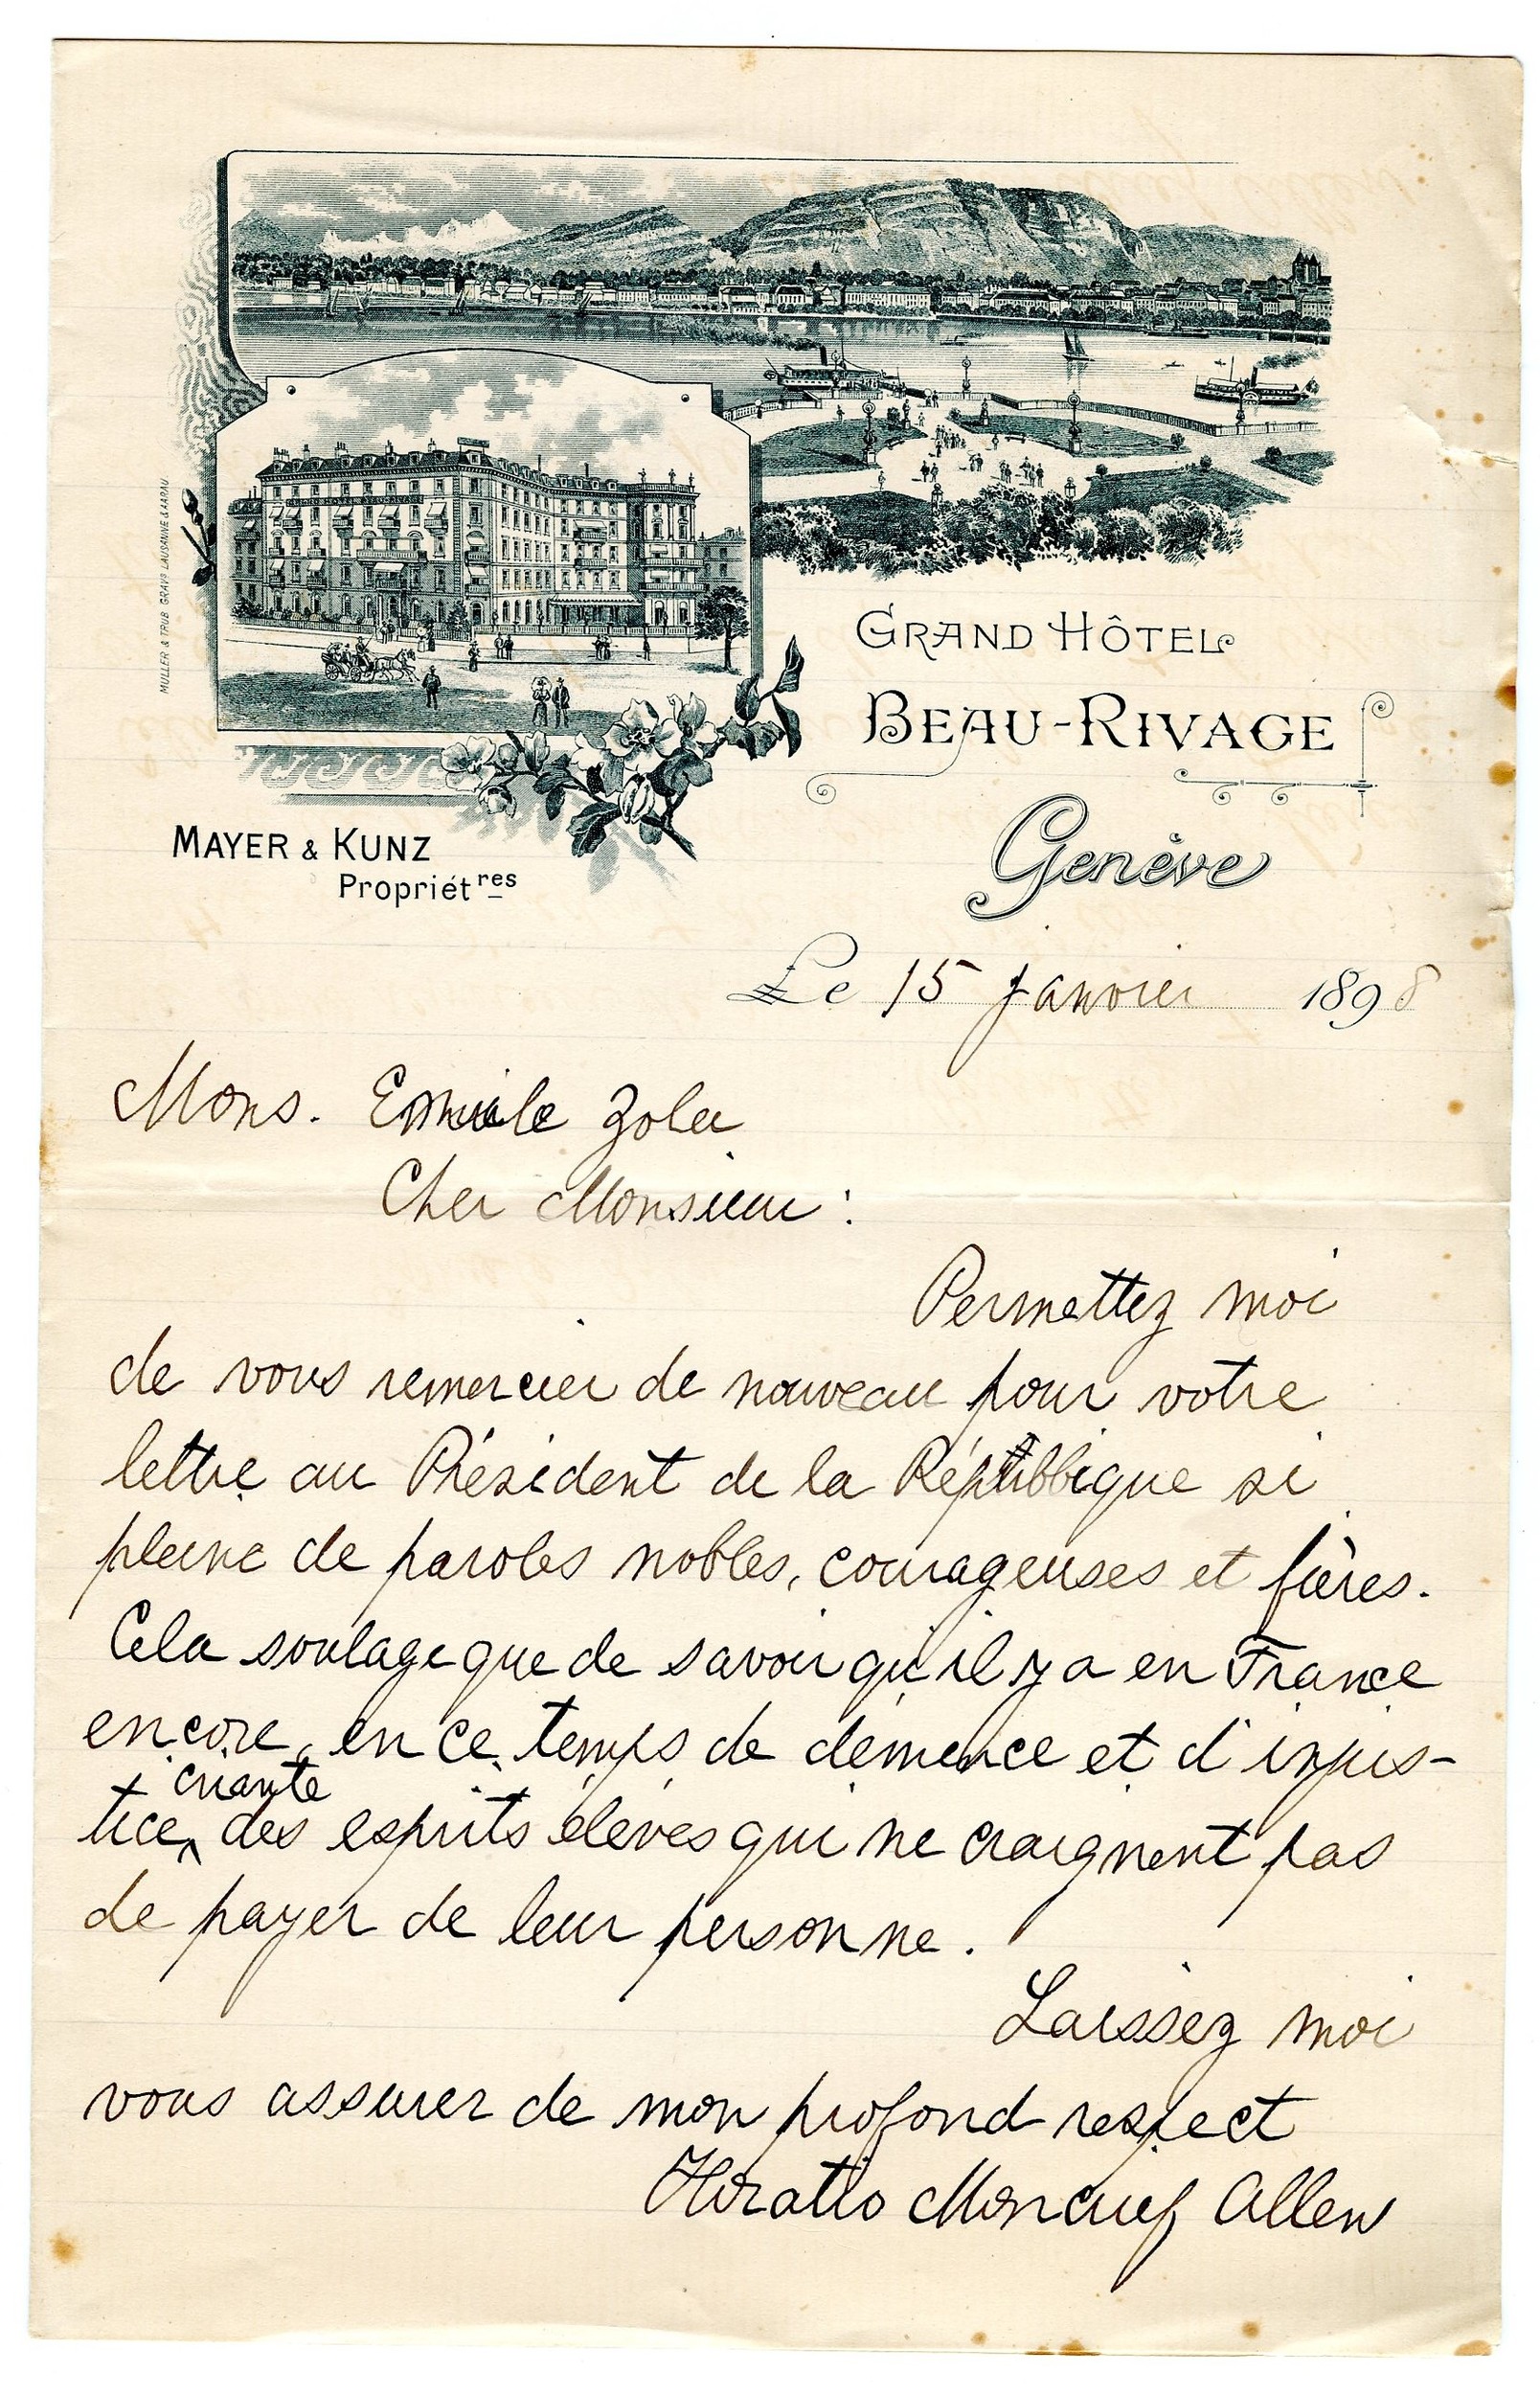 MULLER & TRÜB GRAVS LAUSANNE & AARAU
GRAND HÔTEL
BEAU-RIVAGE
MAYER & KUNZ
Propriétres
Genève
Le 15 janvier 1898
Mons. Emile Zola
Cher Monsieur :
Permettez moi
de vous remercier de nouveau pour votre
lettre au Président de la République si
pleine de paroles nobles, courageuses et fières.
Cela soulage que de savoir qu'il y a en France
encore, en ce temps de démence et d'injus-
criante
tice, des esprits élevés qui ne craignent pas
de payer de leur personne.
Laissez moi
vous assurer de mon profond respect
Horatio Moncrief Allen